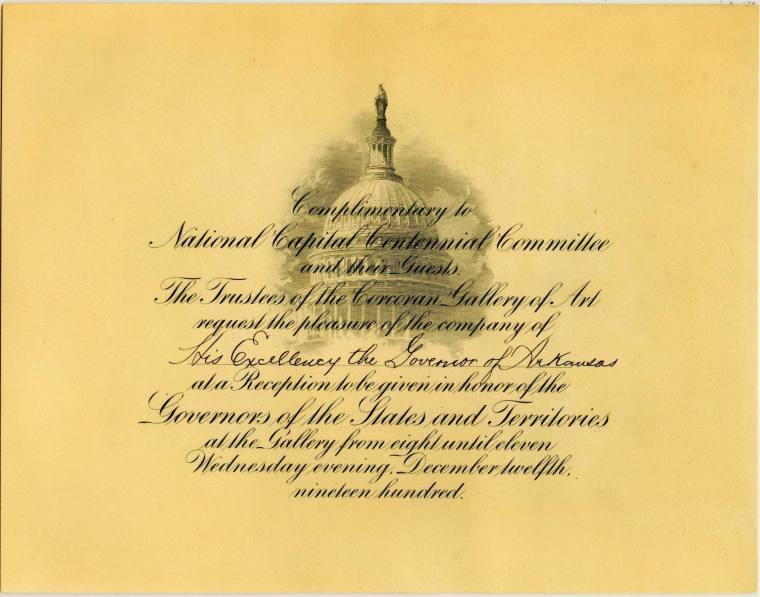 Complimentary to
National Capital Centennial Committee
and their Guests.
The Trustees of the Corcoran Gallery of Art
request the pleasure of the company of
His Excellency the Governor of Arkansas
at a Reception to be given in honor of the
Governors of the States and Territories
at the Gallery from eight until eleven
Wednesday evening, December twelfth,
nineteen hundred.